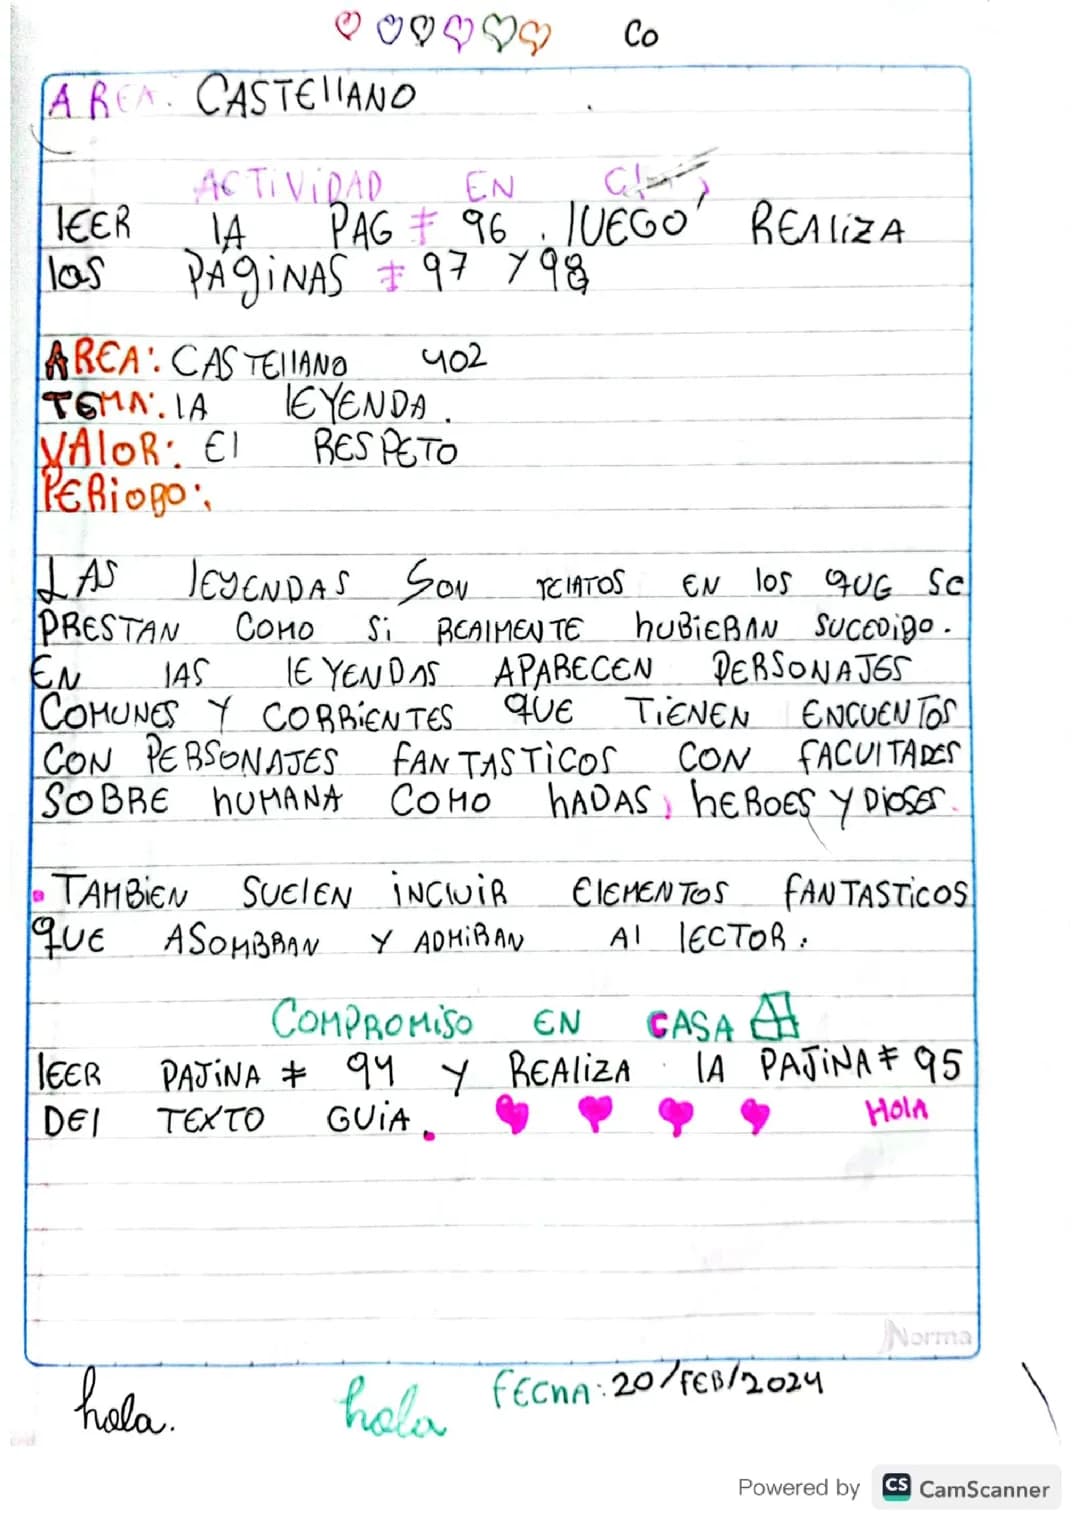 Co
AREA. CASTEllANO
ACTiViDAD EN
lEER lA PAG # 96. lUEGO REAliZA
las PAgiNAS # 97 Y 98
AREA: CASTEllANO 402
TEMA: lA lEYENDA.
VAlOR: El RESPETO
PERiODO:
LAS lEYENDAS SON rElATOS EN los qUE SE
PRESTAN COMO Si REAlMENTE hUBiERAN SUCEDiDO.
EN lAS lEYENDAS APARECEN PERSONAJES
COMUNES Y CORRiENTES qUE TiENEN ENCUENTOS
CON PERSONAJES fANTASTiCOS CON fACUlTADES
SOBRE hUMANA COMO hADAS, hEROES Y DIOSES.
. TAMBiEN SUElEN iNCluiR ElEMENTOS fANTASTiCOS
qUE ASOMBRAN Y ADMiRAN Al lECTOR.
COMPROMiSO EN CASA
lEER PAJiNA # 94 Y REAliZA lA PAJiNA # 95
DEl TEXTO GUiA. HOlA
Norma
hola. hola FECHA: 20/FEB/2024
Powered by CS CamScanner